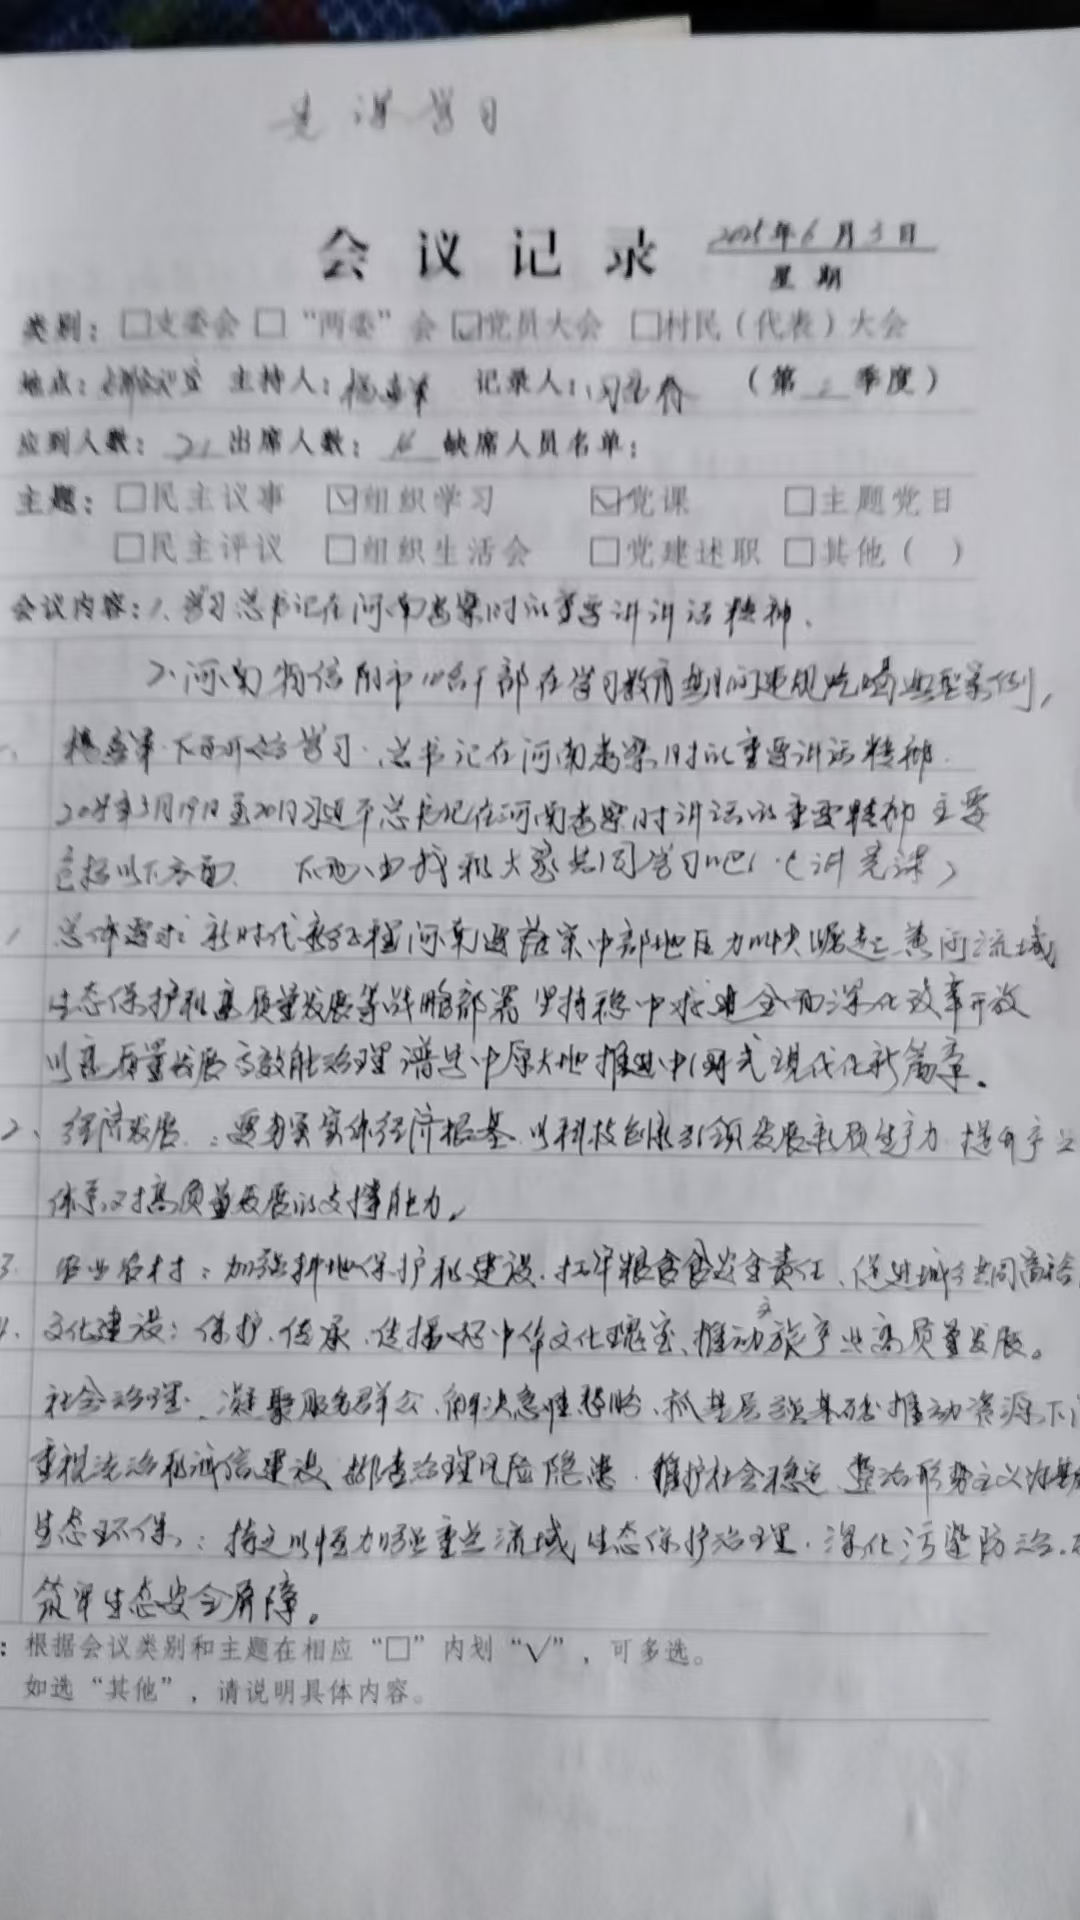 党课学习
会议记录 2025年6月3日
星期
类别：□支委会 □“两委”会 ☑党员大会 □村民（代表）大会
地点： 主持人： 记录人： （第二季度）
应到人数：21 出席人数：16 缺席人员名单：
主题：□民主议事 ☑组织学习 ☑党课 □主题党日
□民主评议 □组织生活会 □党建述职 □其他（ ）
会议内容：1、学习总书记在河南考察时的重要讲讲话精神、
2、河南 信阳市 干部在学习教育期间违规吃喝典型案例，
下面开始学习、总书记在河南考察时的重要讲话精神．
5月19日至20日习近平总书记在河南考察时讲话的重要精神主要
包括以下方面、 下面、由我和大家共同学习吧！（讲党课）
总体要求：新时代新征程河南要落实中部地区加快崛起、黄河流域
生态保护和高质量发展等战略部署 坚持稳中求进全面深化改革开放
以高质量发展高效能治理谱写中原大地推进中国式现代化新篇章。
2、经济发展：要夯实实体经济根基、以科技创新引领发展新质生产力 提升产业
体系对高质量发展的支撑能力，
3、农业农村：加强耕地保护和建设、扛牢粮食安全责任、促进城乡共同富裕
4、文化建设：保护、传承、传播好中华文化瑰宝、推动文旅产业高质量发展。
社会治理、凝聚服务群众、解决急难愁盼、抓基层强基础推动资源下
重视法治和诚信建设 排查治理风险隐患、维护社会稳定 整治形势主义为基
生态环保：持之以恒加强重点流域生态保护治理、深化污染防治、
筑牢生态安全屏障。
：根据会议类别和主题在相应“□”内划“√”，可多选。
如选“其他”，请说明具体内容。